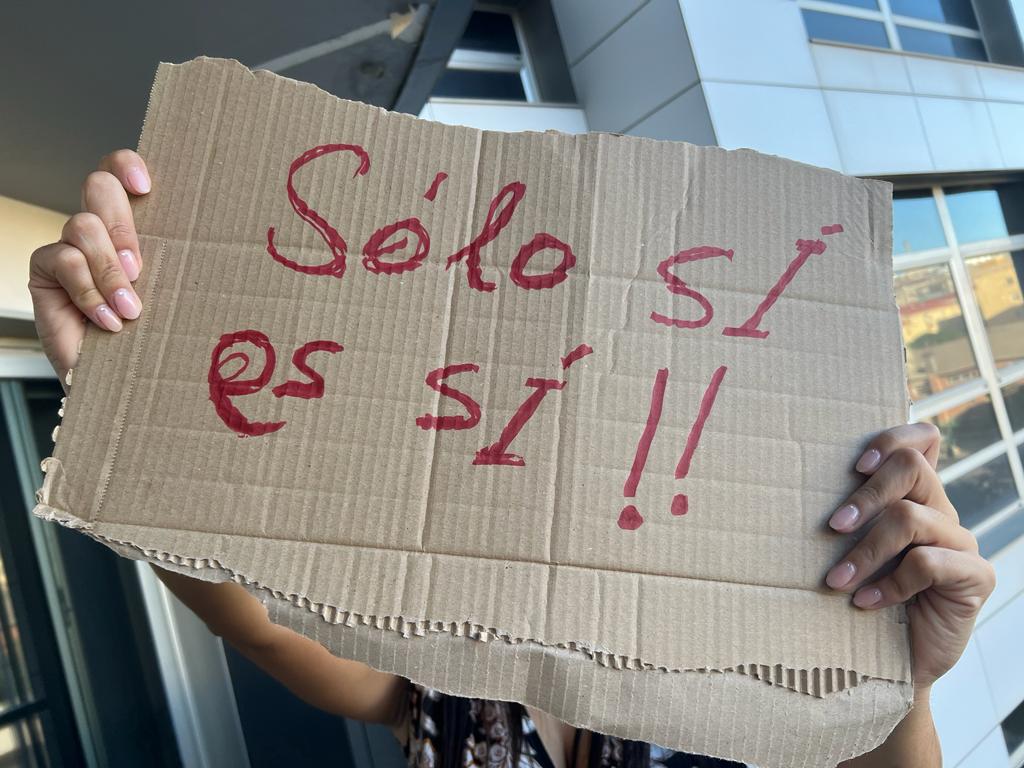 Sólo SÍ
es SÍ!!